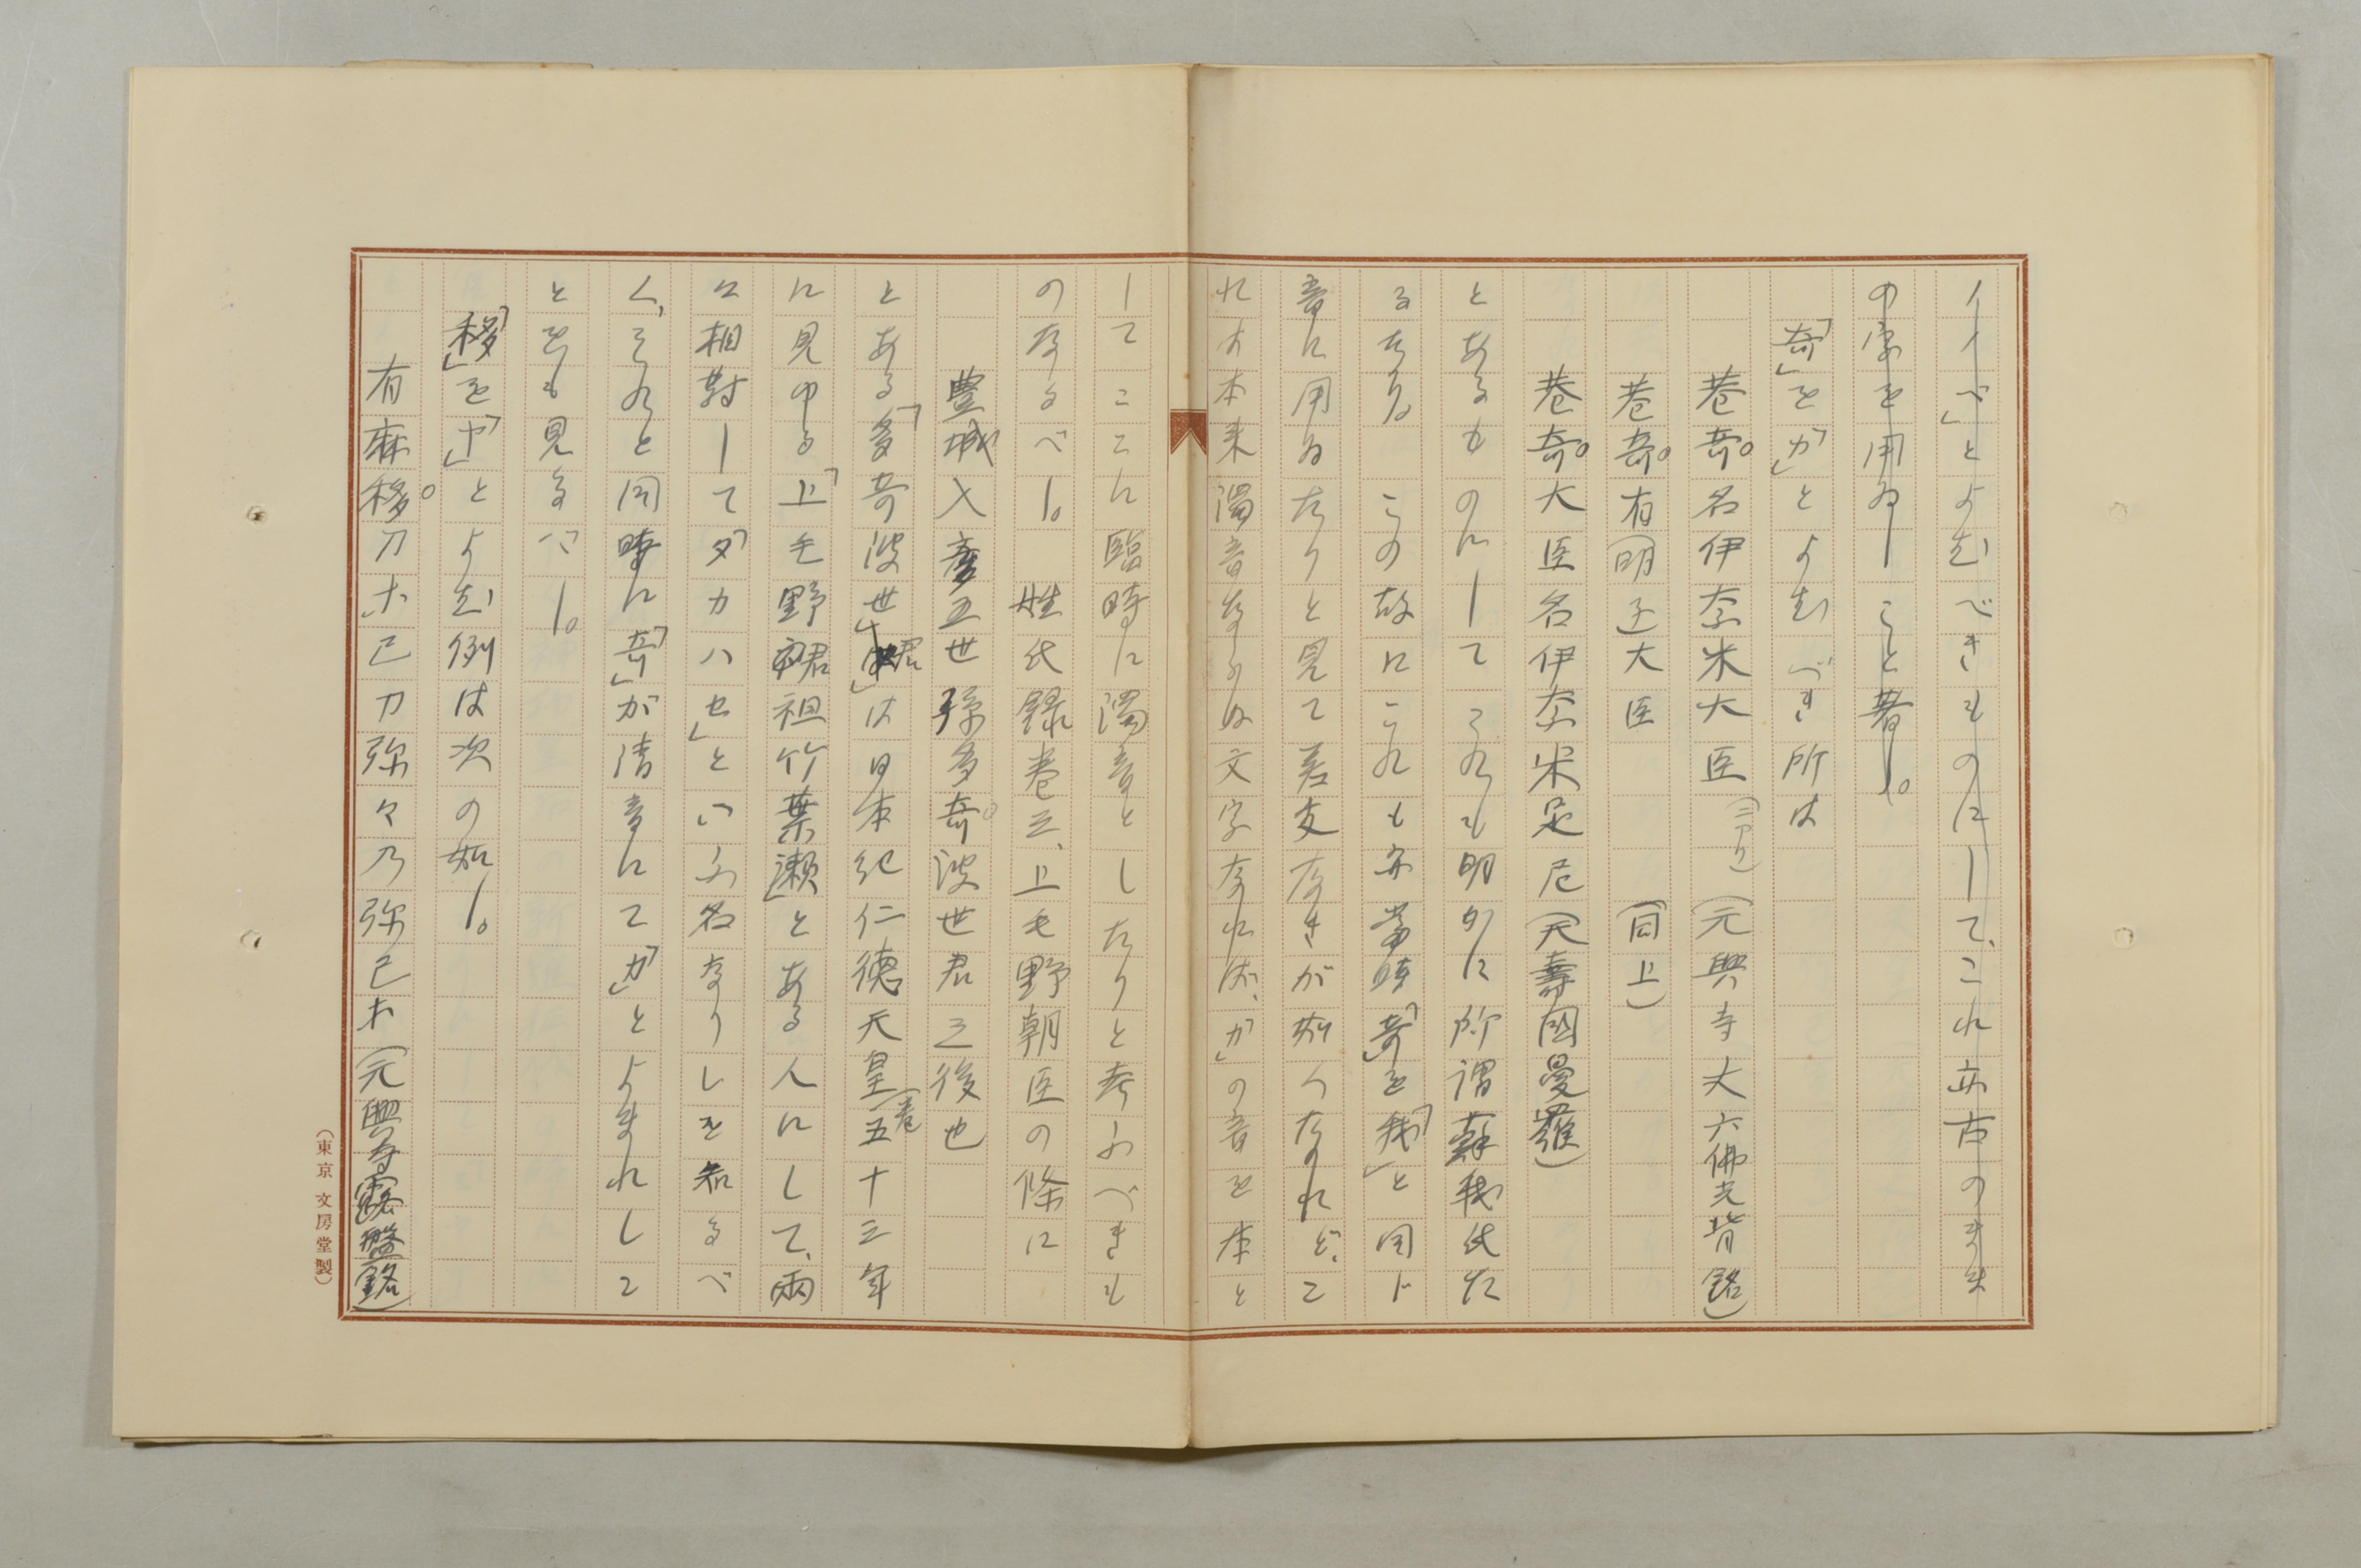 イイベ」とよむべきものにして、これ亦古のまま
の字を用ゐしこと著し。
「奇」を「カ」とよむべき所は
巷奇。名伊奈米大臣（元興寺丈六佛光背銘）
巷奇。有（明）子大臣（同上）
巷奇。大臣名伊奈米足尼（天壽國曼羅）
とあるものにしてこれも明かに所謂蘇我氏た
るなり。この故にこれも亦當時「奇」を「我」と同じ
音に用ゐたりと見て差支なきが如くなれど、こ
れは本来濁音なるは文字なれば、「カ」の音を本と
してここに臨時に濁音としたりと考ふべきも
のなるべし。姓氏録巻三、上毛野朝臣の條に
豊城入彦五世孫多奇。波世君之後也
とある「多奇波世君」は日本紀仁徳天皇（巻）五十三年
に見ゆる「上毛野君祖竹葉瀬」とある人にして、両
々相對して「タカハセ」といふ名なりしを知るべ
く、それと同時に「奇」が清音にて「カ」とよまれしこ
とをも見るべし。
「移」を「ヤ」とよむ例は次の如し。
有麻移。刀ホ已刀弥々乃弥已ホ（元興寺露盤銘）
（東京 文房堂製）